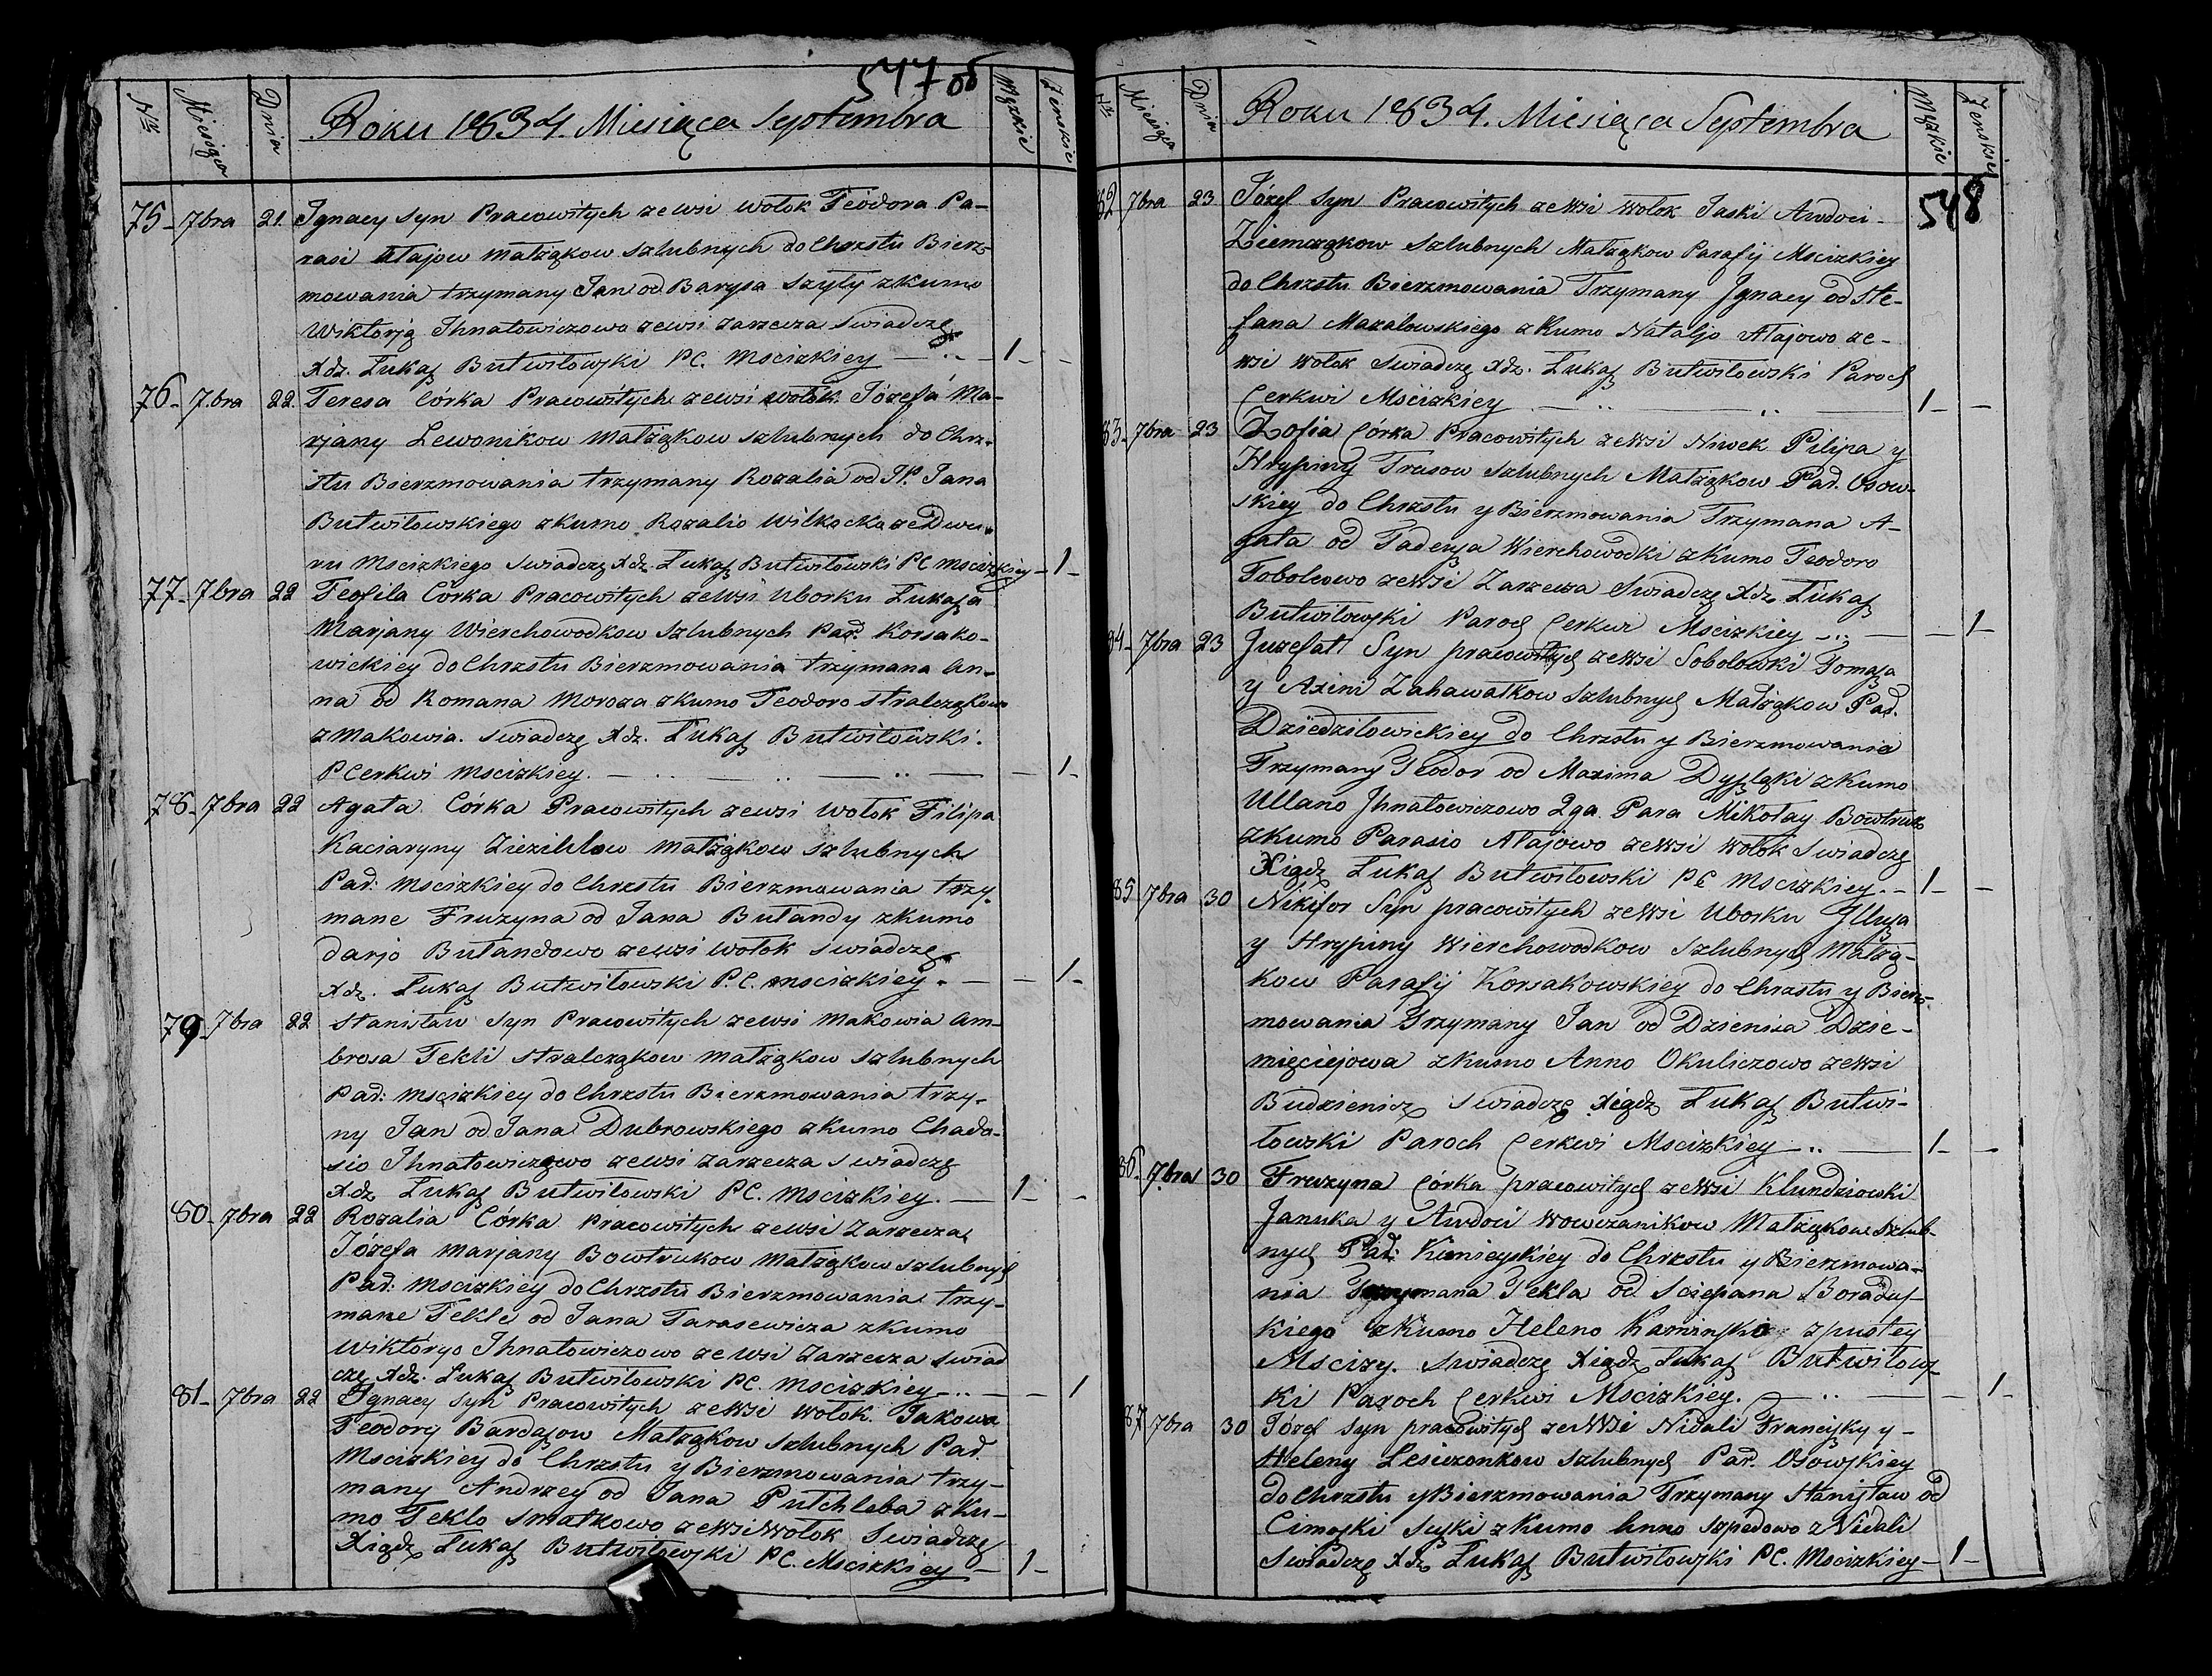 547 об
Nr Miesiąca Dnia Roku 1834. Miesiąca Septembra Męzkie Żenskie
75 - 7bra 21. Ignacy syn Pracowitych zewsi Wołok Teodora Pa-
rasi Ałajow małżąkow szlubnych do Chrzstu Bierz-
mowania trzymany Jan od Barysa Szyły zkumo
Wiktorją Ihnatowiczowo zewsi Zarzecza Swiadczę
Xdz. Łukasz Butwiłowski PC. Mscizkiey — 1 -
76 - 7bra 22. Teresa Córka Pracowitych zewsi Wołok Józefa Ma-
rjany Lewonikow małżąkow szlubnych do Chrz-
stu Bierzmowania trzymany Rozalia od JP. Jana
Butwiłowskiego zkumo Rozalio Wilkocko ze Dwo-
ru Mscizkiego Swiadczę Xdz. Łukasz Butwiłowski PC Mscizkiey - 1 -
77 - 7bra 22 Teofila Corka Pracowitych zewsi Uborku Łukasza
Marjany Wierchowodkow szlubnych Par. Korsako-
wickiey do Chrzstu Bierzmowania trzymana An-
na od Romana Moroza zkumo Teodoro Stralcząkowo
z Makowia. Swiadczę Xdz. Łukasz Butwiłowski.
P Cerkwi Mscizkiey. — 1 -
78 - 7bra 22 Agata Córka Pracowitych zewsi Wołok Filipa
Kaciaryny małżąkow szlubnych
Par: Mscizkiey do Chrzstu Bierzmowania trzy-
mane Fruzyna od Jana Bułandy zkumo
darjo Bułandowo zewsi Wołok swiadczę
Xdz. Łukasz Butwiłowski P.C. Mscizkiey. — 1 -
79 - 7bra 22 Stanisław syn Pracowitych zewsi Makowia Am-
brosa Tekli Stralcząkow małżąkow szlubnych
Par: Mscizkiey do Chrzstu Bierzmowania trzy-
ny Jan od Jana Dubrowskiego zkumo Chado-
sio Ihnatowiczowo zewsi Zarzecza swiadczę
Xdz Łukasz Butwiłowski PC. Mscizkiey. — 1 -
80 - 7bra 22 Rozalia Córka Pracowitych zewsi Zarzecza
Józefa Marjany Bowtrukow małżąkow szlubnych
Par: Mscizkiey do Chrzstu Bierzmowania trzy-
mane Tekle od Jana Tarasewicza zkumo
Wiktoryo Ihnatowiczowo zewsi Zarzecza swiad
czę Xdz. Łukasz Butwiłowski PC. Mscizkiey — 1
81 - 7bra 22 Ignacy syn Pracowitych zewsi Wołok. Jakowa
Teodory Bardaszow Małżąkow szlubnych Par.
Mscizkiey do Chrzstu y Bierzmowania trzy-
many Andrzey od Jana Putchleba zku-
mo Teklo Smatkowo zewsi Wołok Swiadczę
Xiądz Łukasz Butwiłowski PC. Mscizkiey — 1 -
Nr Miesiąca Dnia Roku 1834. Miesiąca Septembra Męzkie Żenskie
548
82 7bra 23 Józef syn Pracowitych zewsi Wołok Jaski Awdoci-
Ziemcząkow szlubnych Małżąkow Parafij Mscizkiey
do Chrzstu Bierzmowania Trzymany Ignacy od Ste-
fana Mazalewskiego zkumo Nataljo Ałajowo ze-
wsi Wołok Swiadczę Xdz. Łukasz Butwiłowski Paroch
Cerkwi Mscizkiey — 1 - -
83 - 7bra 23 Zofia Córka Pracowitych zewsi Niwek Pilipa y
Hrypiny Trusow szlubnych Małżąkow Par. Osow-
skiey do Chrzstu y Bierzmowania Trzymana A-
gata od Tadeusza Wierchowodki zkumo Teodoro
Tobolcowo zewsi Zarzecza Swiadczę Xdz Łukasz
Butwiłowski Paroch Cerkwi Mscizkiey — 1 -
84 - 7bra 23 Juzefat Syn pracowitych zewsi Sobolowki Tomasza
y Axini Zahawałkow szlubnych Małżąkow Par.
Dziedziłowickiey do Chrzstu y Bierzmowania
Trzymany Teodor od Maxima zkumo
Ullano Ihnatowiczowo 2ga. Para Mikołay Bowtruk
zkumo Parasio Ałajowo zewsi Wołok Swiadczę
Xiądz Łukasz Butwiłowski PC Mscizkiey. - 1 - -
85 7bra 30 Nikifor Syn pracowitych zewsi Uborku Illysza
y Hrypiny Wierchowodkow szlubnych Małżą-
kow Parafij Korsakowskiey do Chrzstu y Bierz-
mowania Trzymany Jan od Dzienisa Dzie-
mięciejowa zkumo Anno Okuliczowo zewsi
Budzienicz Swiadczę Xiądz Łukasz Butwi-
łowski Paroch Cerkwi Mscizkiey — 1 - -
86 - 7bra 30 Fruzyna Córka pracowitych zewsi Klundziowki
Januka y Awdoci Wowczanikow Małżąkow szlub-
nych Par: do Chrzstu y Bierzmowa-
nia Trzymana Tekla od Sciepana Boradus-
kiego zkumo Heleno Kaminsko zpustey
Mscizy. Swiadczę Xiądz Łukasz Butwiłows-
ki Paroch Cerkwi Mscizkiey. — 1 -
87 7bra 30 Józef syn pracowitych zewsi Nidali Franciszky y -
Heleny Lesiczonkow szlubnych Par. Osowskiey
do Chrzstu y Bierzmowania Trzymany Stanisław od
Cimoszki zkumo Anno Szpedowo z Nidali
Swiadczę Xdz Łukasz Butwiłowski PC. Mscizkiey - 1 -